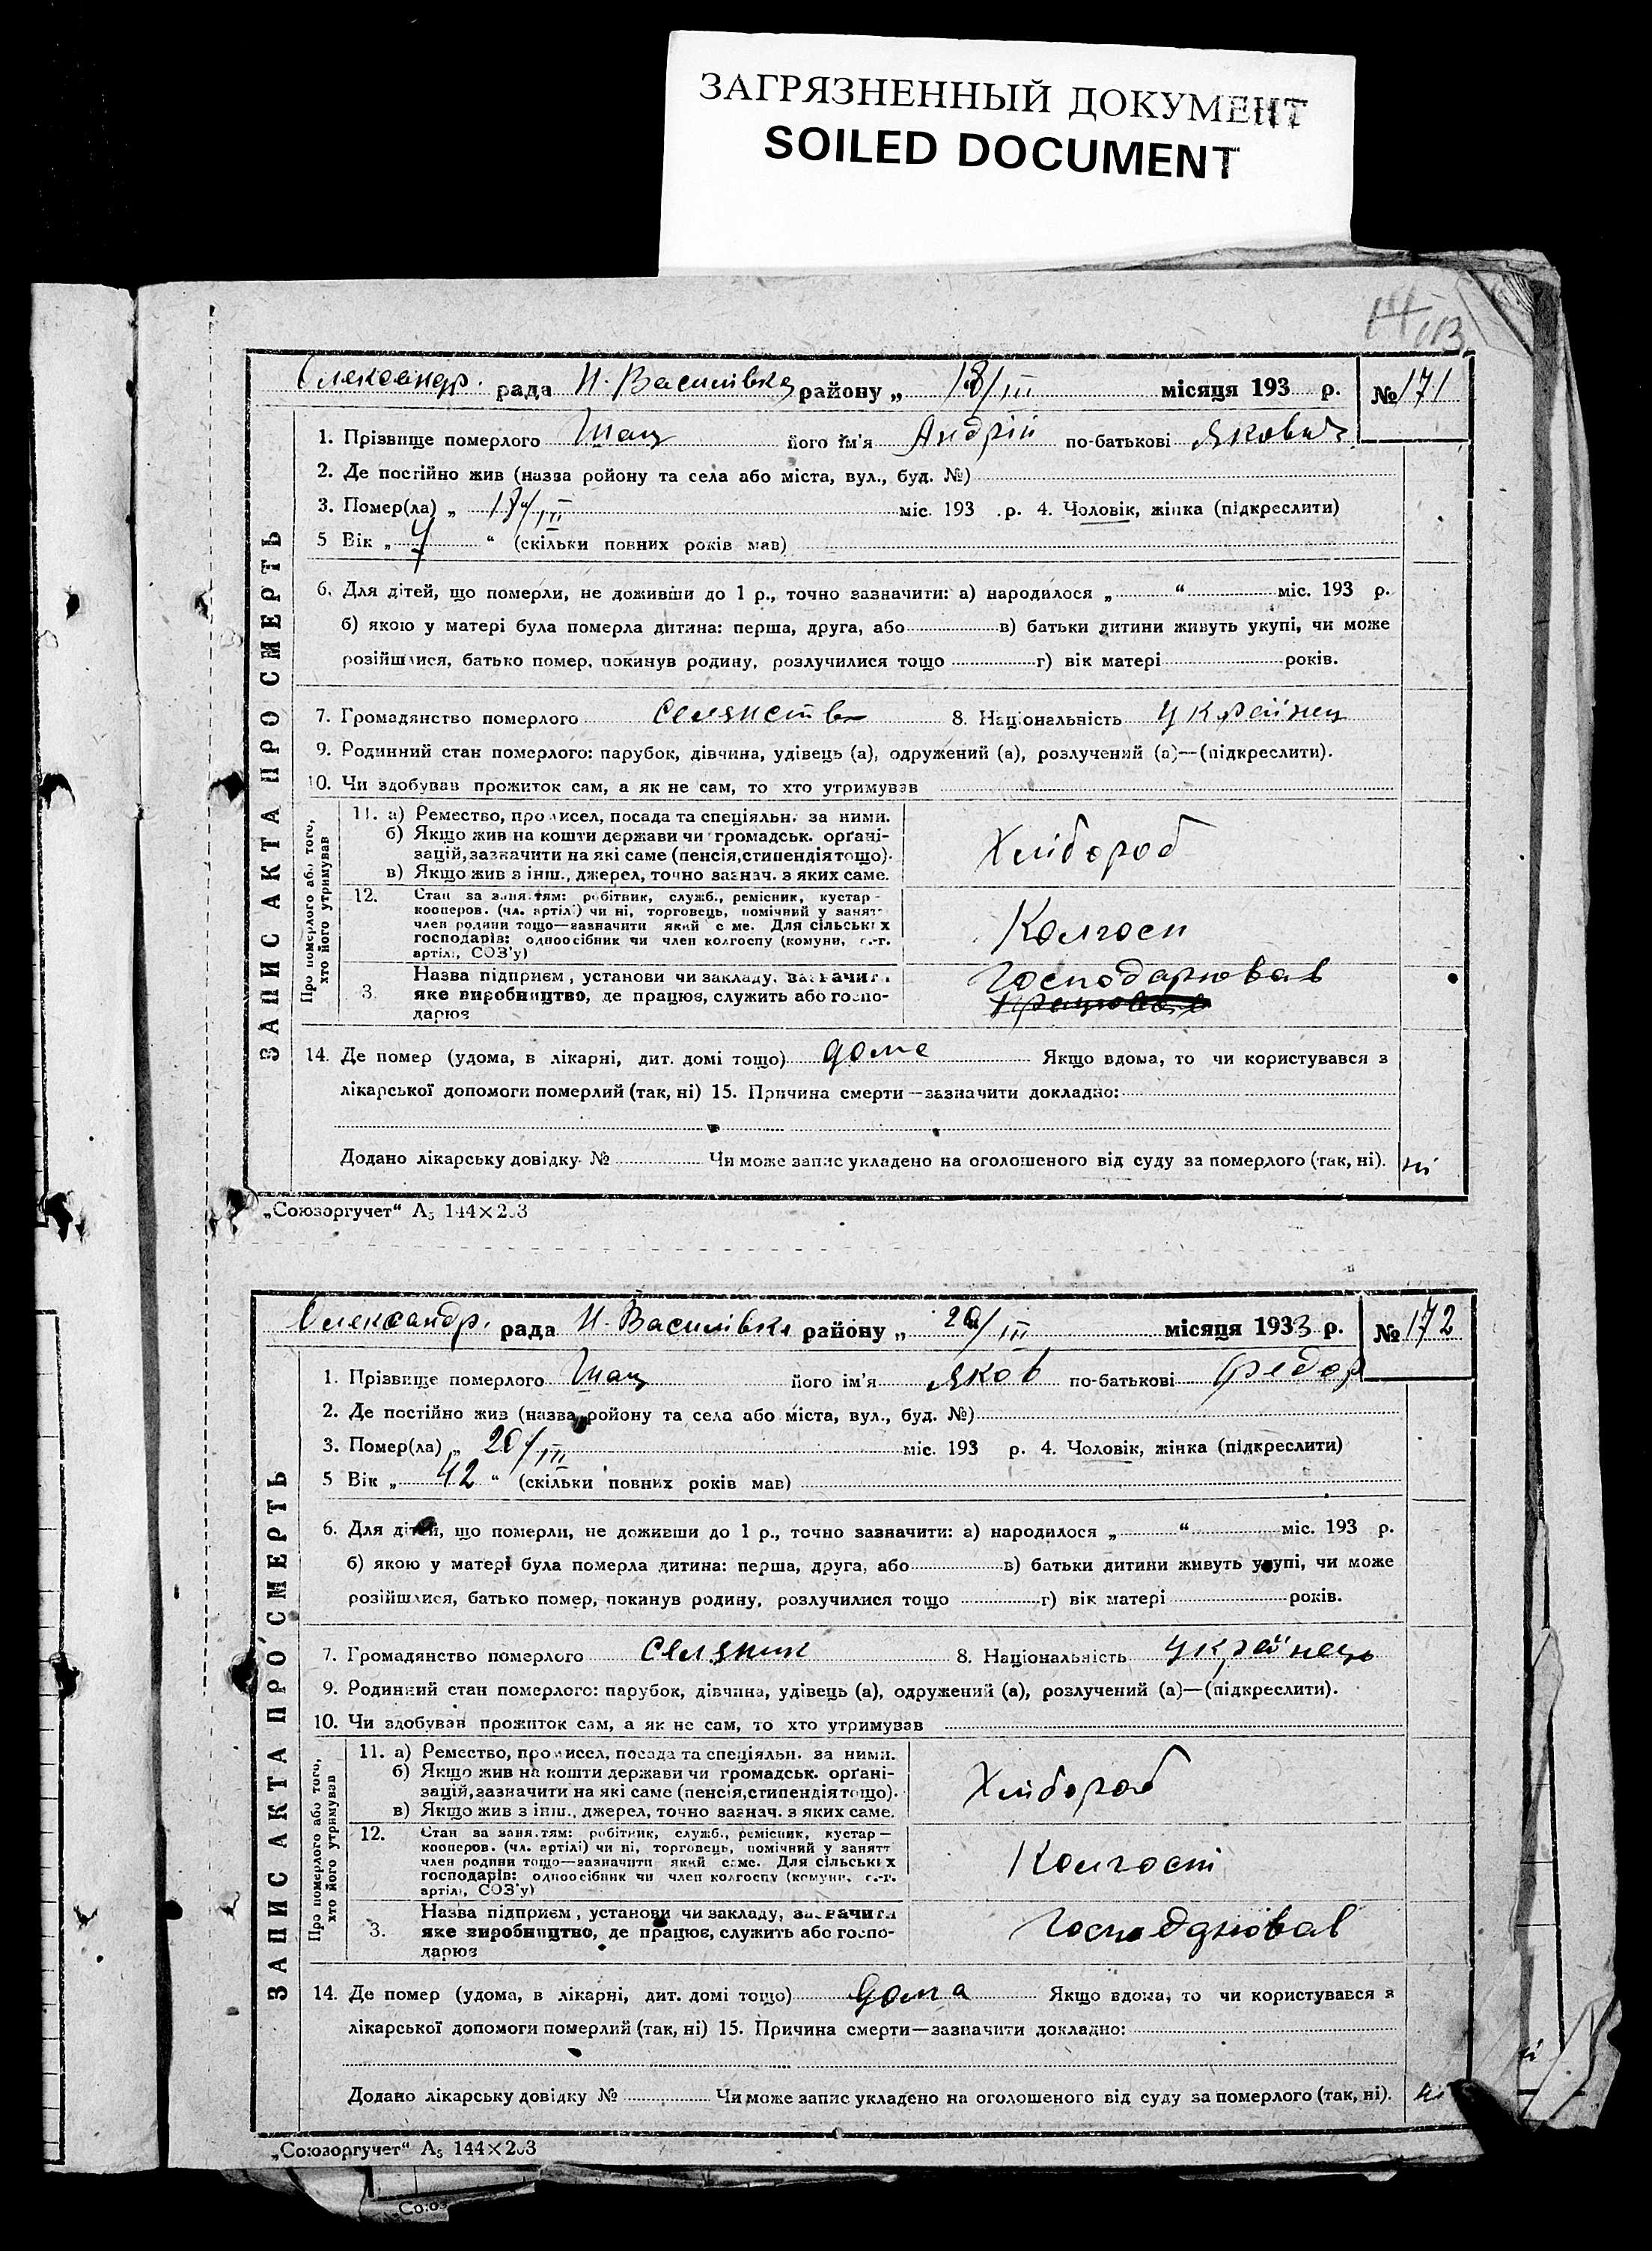 ЗАГРЯЗНЕННЫЙ ДОКУМЕНТ
SOILED DOCUMENT
113
Олександр. рада Н-Василівка району „ 18/III місяця 193 р. № 171
1. Прізвище померлого Шац його ім'я Андрій по-батькові Якович
2. Де постійно жив (назва ройону та села або міста, вул., буд. №)
3. Помер(ла) „ 17/III міс. 193 р. 4. Чоловік, жінка (підкреслити)
5 Вік „ 7 “ (скільки повних років мав)
6. Для дітей, що померли, не доживши до 1 р., точно зазначити: а) народилося „ “ міс. 193 р.
б) якою у матері була померла дитина: перша, друга, або в) батьки дитини живуть укупі, чи може
розійшлися, батько помер, покинув родину, розлучилися тощо г) вік матері років.
7. Громадянство померлого 8. Національність Українец
9. Родинний стан померлого: парубок, дівчина, удівець (а), одружений (а), розлучений (а)—(підкреслити).
10. Чи здобував прожиток сам, а як не сам, то хто утримував
ЗАПИС АКТА ПРО СМЕРТЬ
Про померлого або того, хто його утримував
11. а) Ремество, промисел, посада та спеціяльн. за ними.
б) Якщо жив на кошти держави чи громадськ. орґані-
зацій, зазначити на які саме (пенсія, стипендія тощо).
в) Якщо жив з інш., джерел, точно зазнач. з яких саме.
Хлібороб
12. Стан за занятям: робітник, служб., ремісник, кустар-
кооперов. (чл. артілі) чи ні, торговець, помічний у занятт
член родини тощо—зазначити який саме. Для сільських
господарів: одноосібник чи член колгоспу (комуни, с.-г.
артілі, СОЗ'у)
Колгосп
3. Назва підприєм, установи чи закладу, зазначити
яке виробництво, де працює, служить або госпо-
дарює
Господарював
14. Де помер (удома, в лікарні, дит. домі тощо) дома Якщо вдома, то чи користувався з
лікарської допомоги померлий (так, ні) 15. Причина смерти—зазначити докладно:
Додано лікарську довідку № Чи може запис укладено на оголошеного від суду за померлого (так, ні). ні
„Союзоргучет“ А5 144×203
Олександр. рада Н-Василівка району „ 20/III місяця 1933 р. № 172
1. Прізвище померлого Шац його ім'я Яков по-батькові Федор
2. Де постійно жив (назва ройону та села або міста, вул., буд. №)
3. Помер(ла) „ 20/III міс. 193 р. 4. Чоловік, жінка (підкреслити)
5 Вік „ 42 “ (скільки повних років мав)
6. Для дітей, що померли, не доживши до 1 р., точно зазначити: а) народилося „ “ міс. 193 р.
б) якою у матері була померла дитина: перша, друга, або в) батьки дитини живуть укупі, чи може
розійшлися, батько помер, покинув родину, розлучилися тощо г) вік матері років.
7. Громадянство померлого Селяник 8. Національність Українець
9. Родинний стан померлого: парубок, дівчина, удівець (а), одружений (а), розлучений (а)—(підкреслити).
10. Чи здобував прожиток сам, а як не сам, то хто утримував
ЗАПИС АКТА ПРО СМЕРТЬ
Про померлого або того, хто його утримував
11. а) Ремество, промисел, посада та спеціяльн. за ними.
б) Якщо жив на кошти держави чи громадськ. орґані-
зацій, зазначити на які саме (пенсія, стипендія тощо).
в) Якщо жив з інш., джерел, точно зазнач. з яких саме.
Хлібороб
12. Стан за занятям: робітник, служб., ремісник, кустар—
кооперов. (чл. артілі) чи ні, торговець, помічний у занятт
член родини тощо—зазначити який саме. Для сільських
господарів: одноосібник чи член колгоспу (комуни, с.-г.
артілі, СОЗ'у)
Колгосп
3. Назва підприєм, установи чи закладу, зазначити
яке виробництво, де працює, служить або госпо-
дарює
Господрював
14. Де помер (удома, в лікарні, дит. домі тощо) дома Якщо вдома, то чи користувався з
лікарської допомоги померлий (так, ні) 15. Причина смерти—зазначити докладно:
Додано лікарську довідку № Чи може запис укладено на оголошеного від суду за померлого (так, ні). ні
„Союзоргучет“ А5 144×203
„Союз